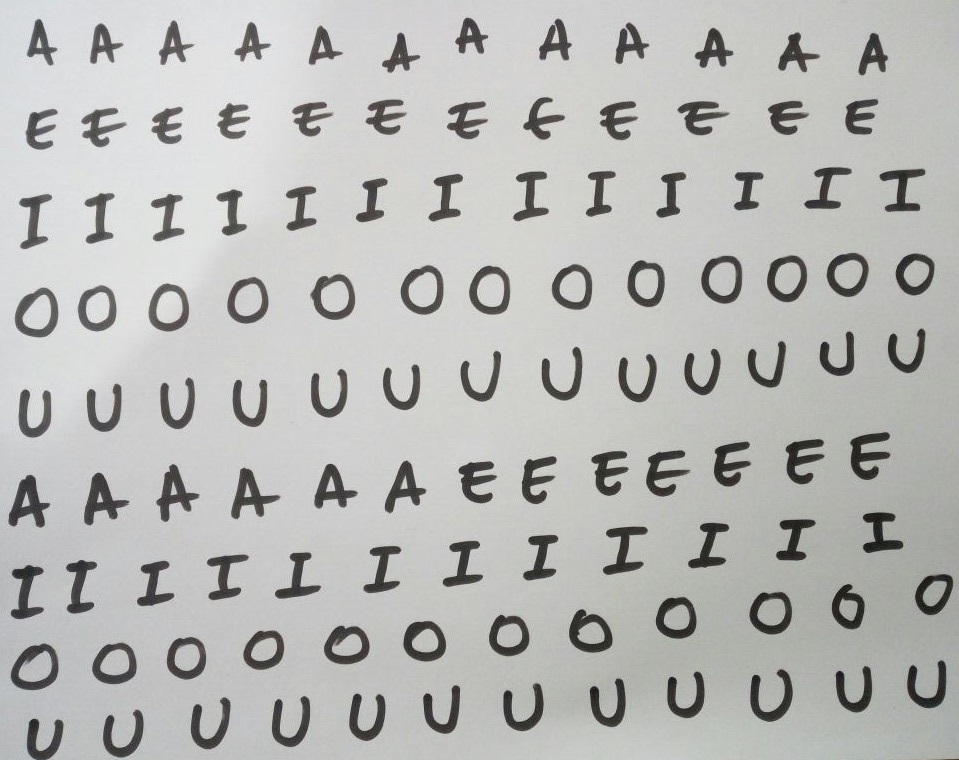 A A A A A A A A A A A A
E E E E E E E E E E E E
I I I I I I I I I I I I I
O O O O O O O O O O O O O
U U U U U U U U U U U U U
A A A A A A E E E E E E E
I I I I I I I I I I I I
O O O O O O O O O O O O
U U U U U U U U U U U U